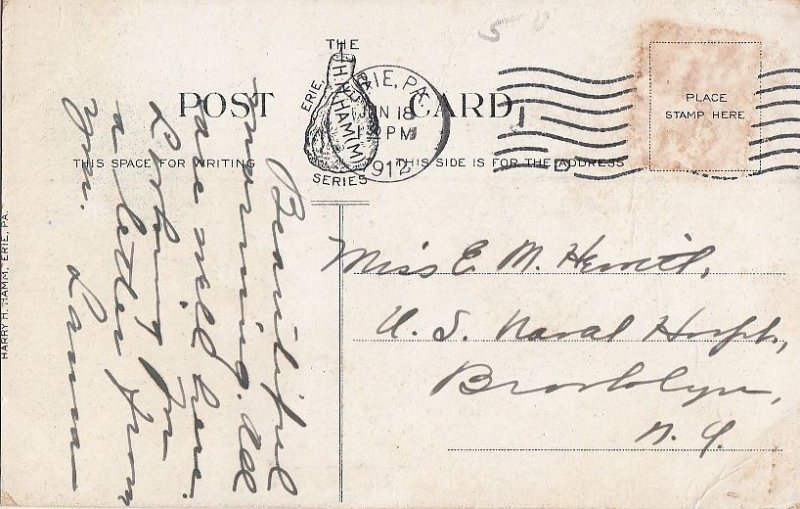 50
THE
ERIE
H.H. HAMM
SERIES
ERIE, PA.
JUN 18
PM
1912
POST CARD
THIS SPACE FOR WRITING
THIS SIDE IS FOR THE ADDRESS
PLACE
STAMP HERE
D
Beautiful
morning. All
are well here.
Looking for
a letter from
you. Laura
Miss E. M. Hewitt,
U. S. Naval Hospt.,
Brooklyn,
N. Y.
HARRY H. HAMM, ERIE, PA.